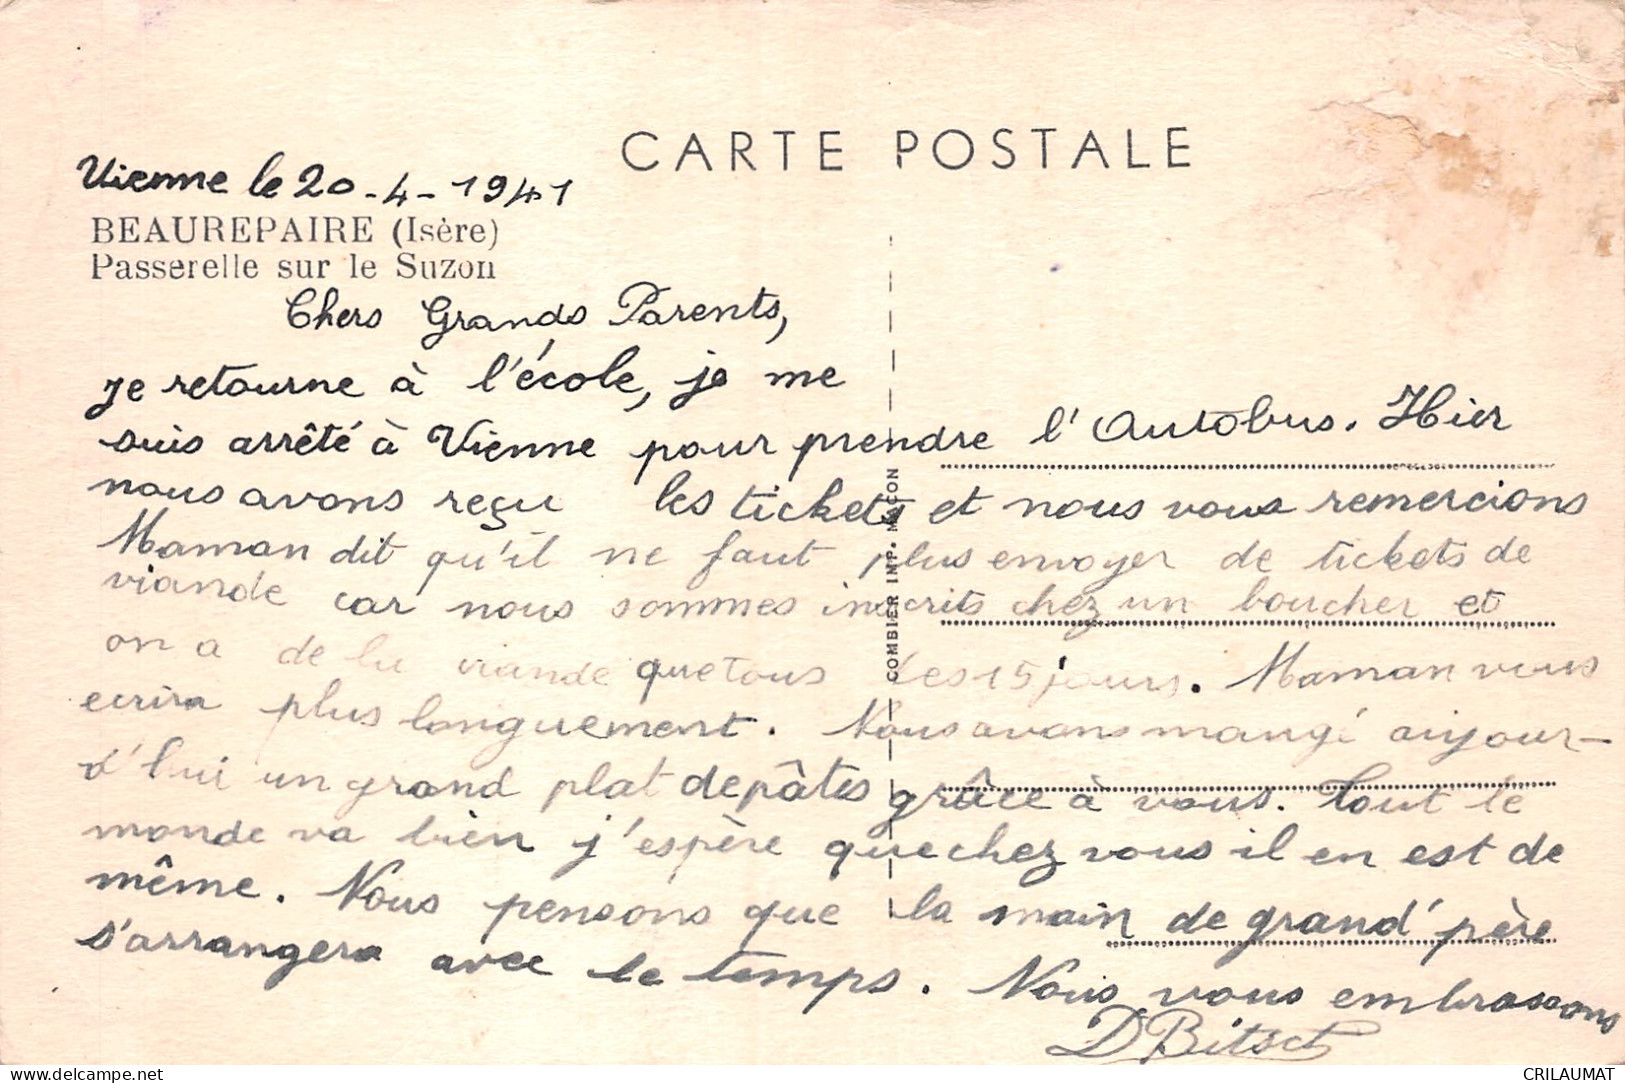 CARTE POSTALE
Vienne le 20-4-1941
BEAUREPAIRE (Isère)
Passerelle sur le Suzon
Chers Grands Parents,
je retourne à l'école, je me
suis arrêté à Vienne pour prendre l'Autobus. Hier
nous avons reçu les tickets et nous vous remercions
Maman dit qu'il ne faut plus envoyer de tickets de
viande car nous sommes inscrits chez un boucher et
on a de la viande que tous les 15 jours. Maman vous
ecrira plus longuement. Nous avons mangé aujour-
d'hui un grand plat de pâtes grâce à vous. Tout le
monde va bien j'espère que chez vous il en est de
même. Nous pensons que la main de grand'père
s'arrangera avec le temps. Nous vous embrassons
D Bitsch
COMBIER IMP. MACON
delcampe.net
CRILAUMAT